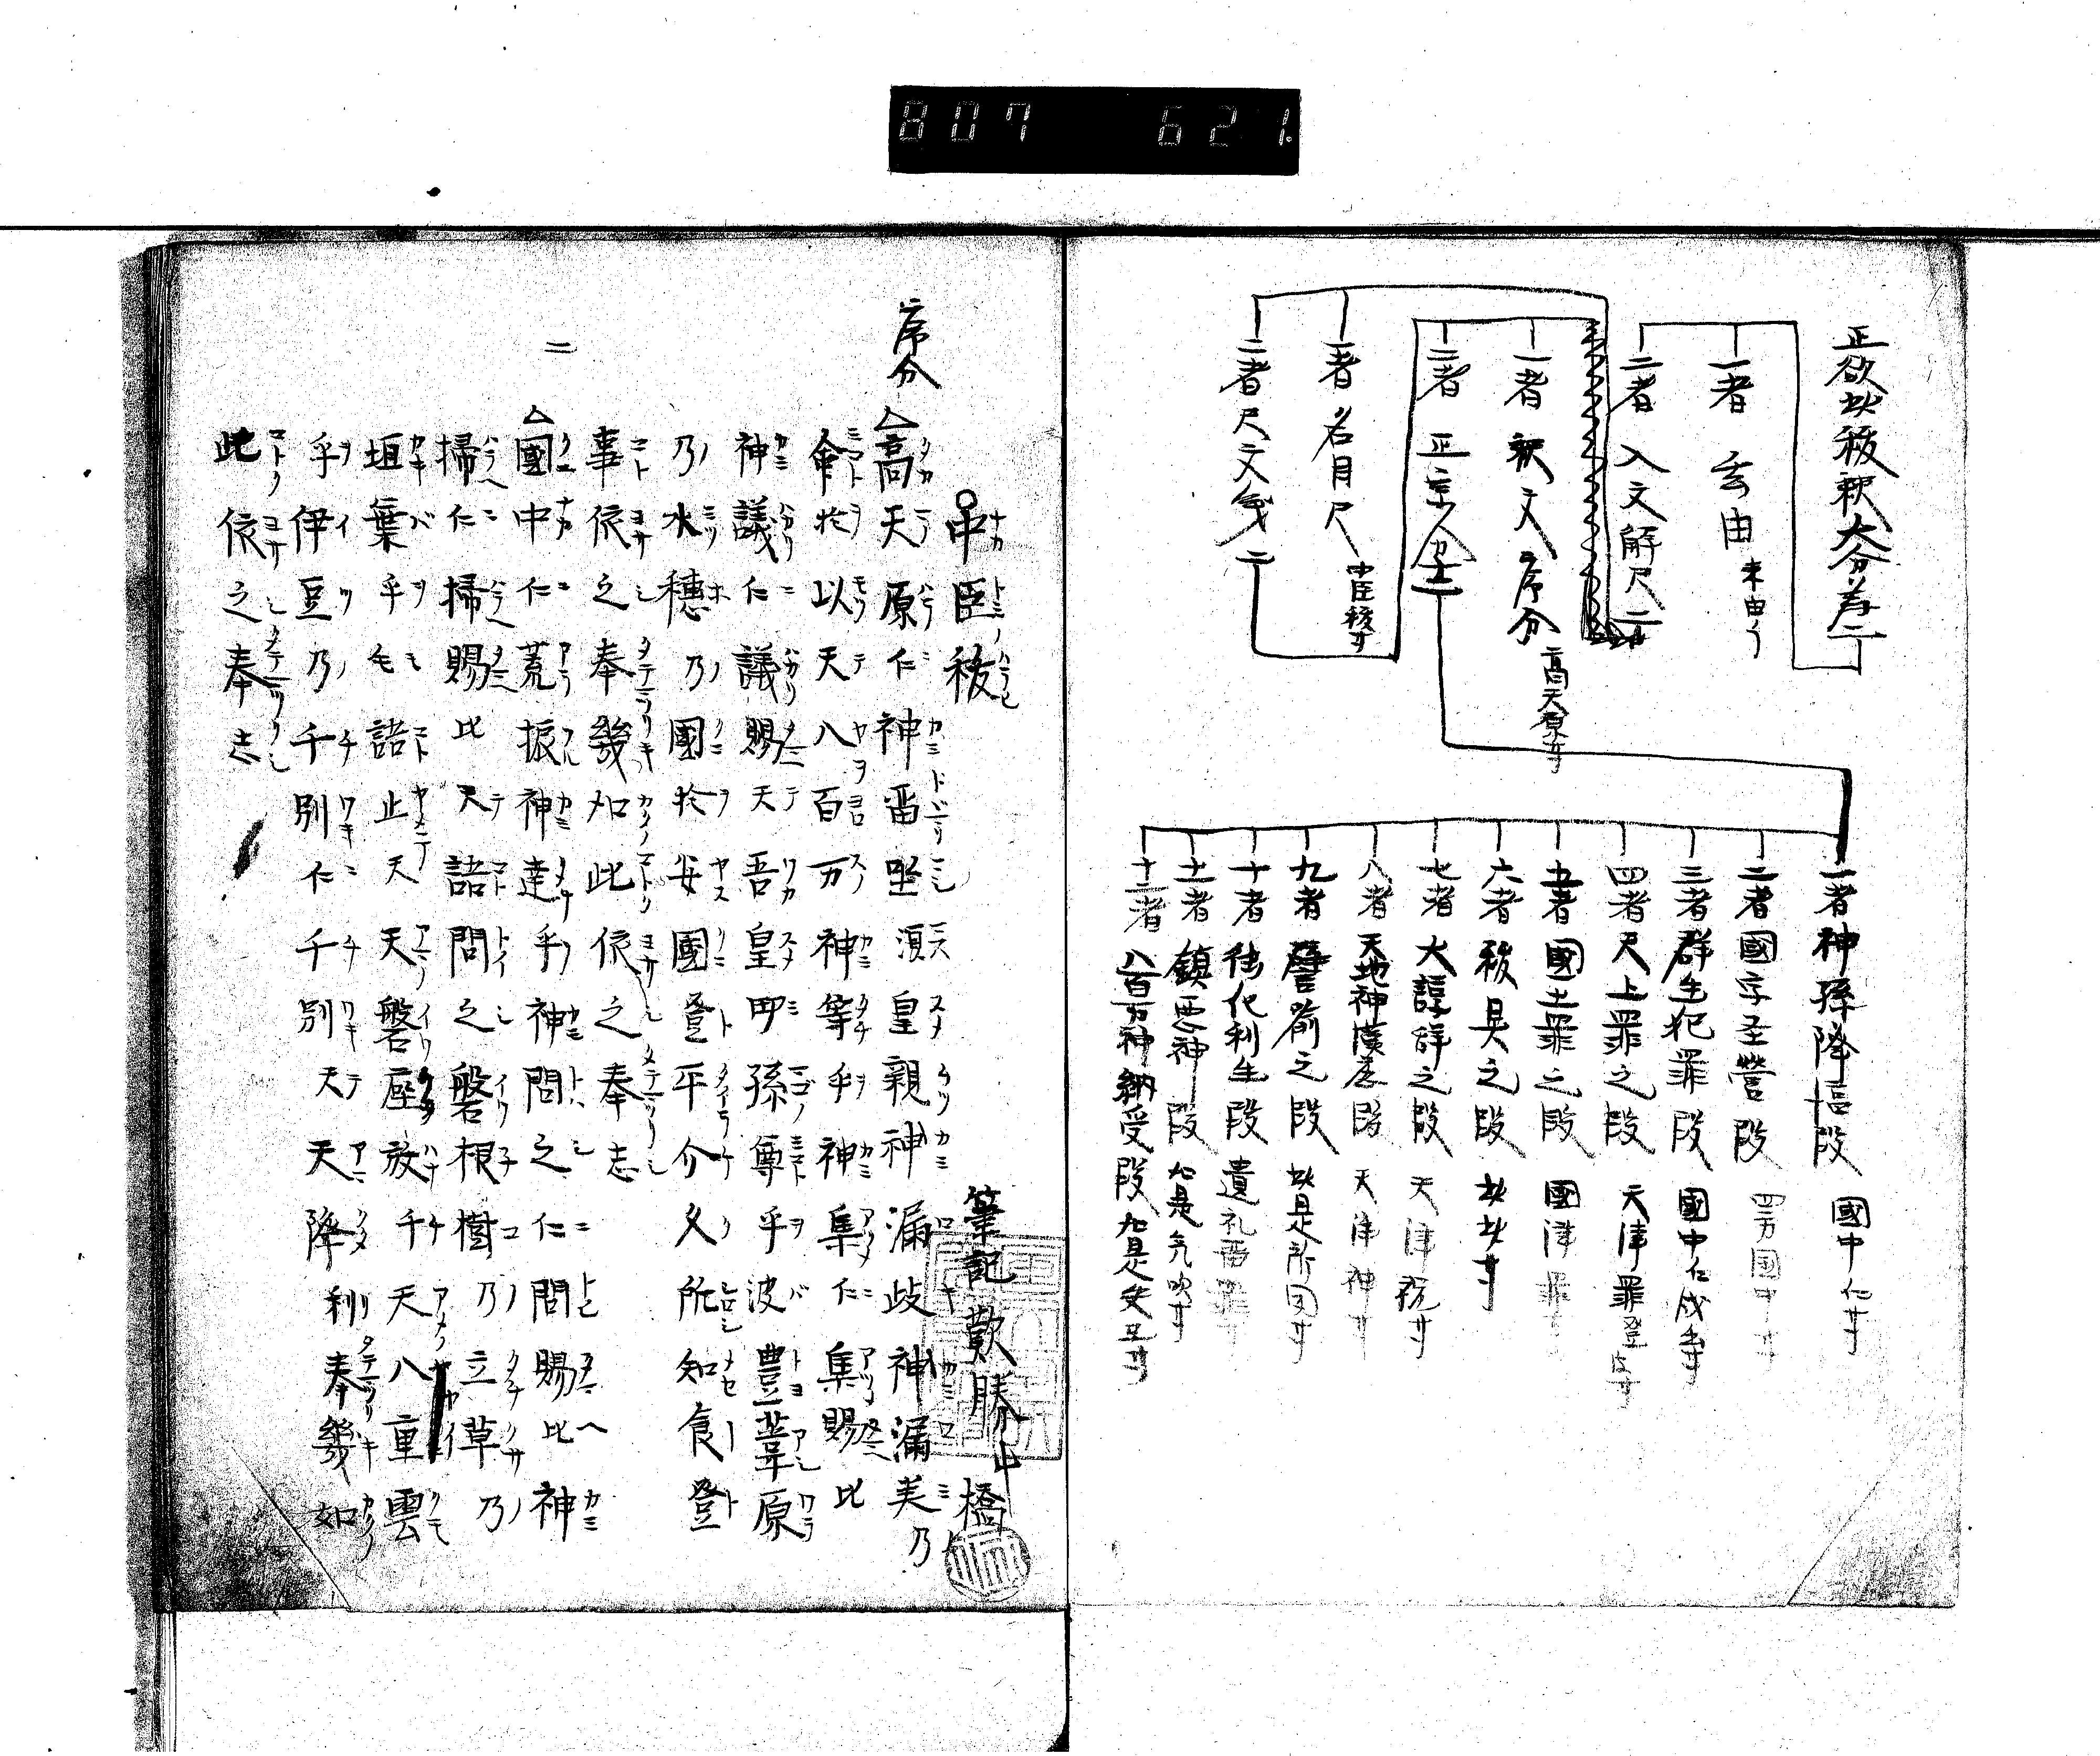 807 621
正欲此祓釈大分為二
一者 玄由 未由了
二者 入文解尺二
一者 釈文序分 高天原等
二者 正宗分十二
一者 名目尺 中臣祓等
二者 尺文義二
一者神孫降臨段 國中仁等
二者國字圣營段 四方国中等
三者群生犯罪段 國中仁成出等
四者尺上罪之段 天津罪登等
五者國土罪之段 國津罪
六者祓具之段 此此等
七者大諄辞之段 天津祝等
八者天地神 段 天津神等
九者譬喻之段 此是所国等
十者 化利生段 遺礼留罪等
十一者鎮悪神段 如是気吹等
十二者八百万神納受段 如是失 等
中臣祓 ナカトミノハラヒ
筆記歎勝止 橋
序分
高天原仁神畄坐須皇親神漏岐神漏美乃
命於以天八百万神等乎神集仁集賜比
神議仁議賜天吾皇御孫尊乎波豊葦原
乃水穗乃國於安國登平介久所知食登
事依之奉幾如此依之奉志
二
國中仁荒振神達乎神問之仁問賜比神
掃仁掃賜比天語問之磐根樹乃立草乃
垣葉乎毛語止天天磐座放千天八重雲
乎伊豆乃千別仁千別天天降利奉幾如
此依之奉志